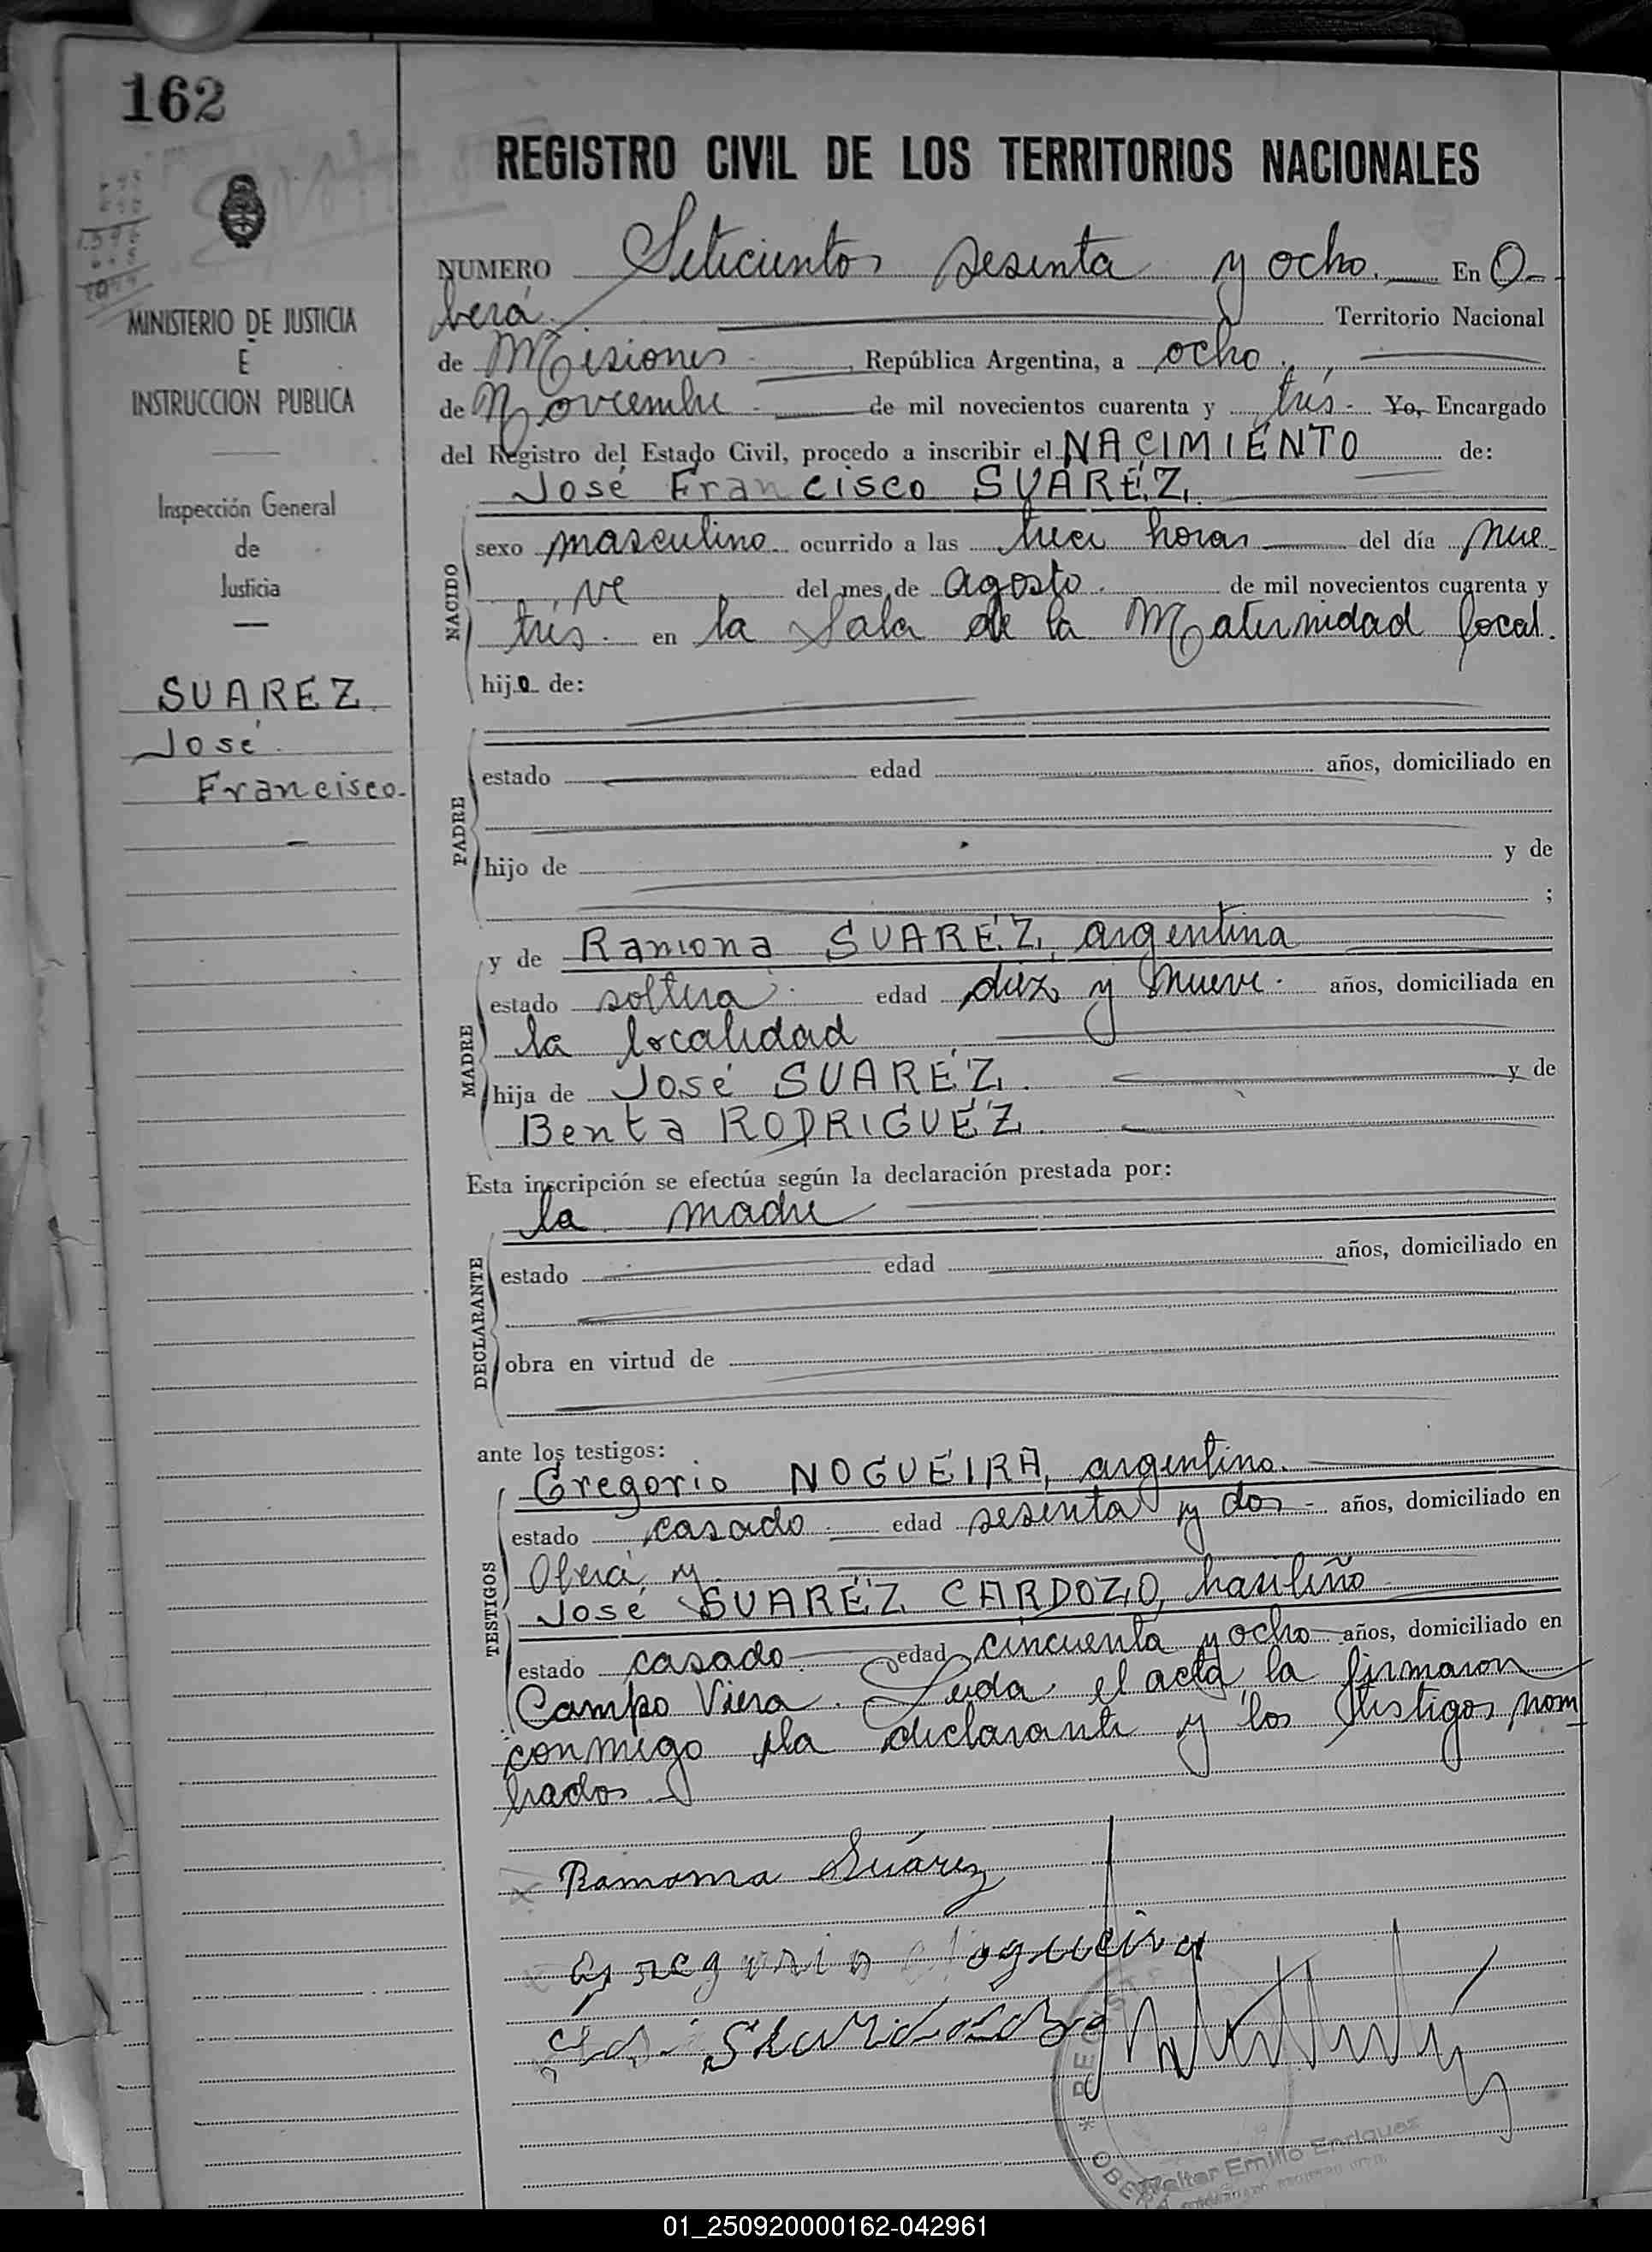 162
REGISTRO CIVIL DE LOS TERRITORIOS NACIONALES
MINISTERIO DE JUSTICIA
E
INSTRUCCION PUBLICA
Inspección General
de
Justicia
SUAREZ
José
Francisco.
NUMERO Seticientos sesenta y ocho. En O-
berá. Territorio Nacional
de Misiones República Argentina, a ocho
de Noviembre de mil novecientos cuarenta y trés. Yo, Encargado
del Registro del Estado Civil, procedo a inscribir el NACIMIENTO de:
José Francisco SUAREZ
NACIDO
sexo masculino ocurrido a las trece horas del día nue
ve del mes de agosto de mil novecientos cuarenta y
trés. en la Sala de la Maternidad local.
hijo de:
PADRE
estado edad años, domiciliado en
hijo de y de
;
MADRE
y de Ramona SUAREZ, argentina
estado soltera edad diez y nueve. años, domiciliada en
la localidad
hija de José SUAREZ. y de
Benta RODRIGUEZ.
Esta inscripción se efectúa según la declaración prestada por:
la madre
DECLARANTE
estado edad años, domiciliado en
obra en virtud de
ante los testigos:
TESTIGOS
Gregorio NOGUEIRA, argentino.
estado casado edad sesenta y dos años, domiciliado en
Oberá y
José SUAREZ CARDOZO, brasileño
estado casado edad cincuenta y ocho años, domiciliado en
Campo Viera. Leida el acta la firmaron
conmigo la declarante y los testigos nom
brados.
Ramona Suárez
Gregorio Nogueira
REGISTR
OBERA
Walter Emilio Enriquez
01_250920000162-042961